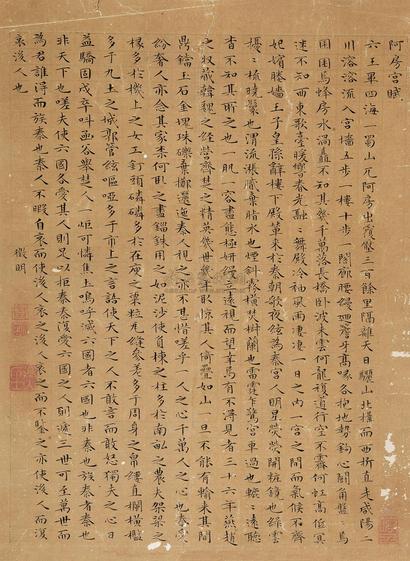 阿房宮賦
六王畢四海一蜀山兀阿房出覆壓三百餘里隔離天日驪山北構而西折直走咸陽二
川溶溶流入宮牆五步一樓十步一閣廊腰縵迴簷牙高啄各抱地勢鈎心鬥角盤盤焉
囷囷焉蜂房水渦矗不知其幾千萬落長橋臥波未雲何龍複道行空不霽何虹高低冥
迷不知西東歌臺暖響春光融融舞殿冷袖風雨凄凄一日之內一宮之間而氣候不齊
妃嬪媵嬙王子皇孫辭樓下殿輦來于秦朝歌夜絃為秦宮人明星熒熒開粧鏡也綠雲
擾擾梳曉鬟也渭流漲膩棄脂水也煙斜霧橫焚椒蘭也雷霆乍驚宮車過也轆轆遠聽
杳不知其所之也一肌一容盡態極妍縵立遠視而望幸焉有不得見者三十六年燕趙
之收藏韓魏之經營齊楚之精英幾世幾年取掠其人倚疊如山一旦不能有輸來其間
鼎鐺玉石金塊珠礫棄擲邐迤秦人視之亦不甚惜嗟乎一人之心千萬人之心也秦愛
紛奢人亦念其家柰何取之盡錙銖用之如泥沙使負棟之柱多於南畝之農夫架梁之
椽多於機上之女工釘頭磷磷多於在庾之粟粒瓦縫參差多于周身之帛縷直欄橫檻
多于九土之城郭管絃嘔啞多于市上之言語使天下之人不敢言而敢怒獨夫之心日
益驕固戍卒呌函谷舉楚人一炬可憐焦土嗚呼滅六國者六國也非秦也族秦者秦也
非天下也嗟夫使六國各愛其人則足以拒秦秦復愛六國之人則遞三世可至萬世而
為君誰得而族秦也秦人不暇自哀而使後人哀之後人哀之而不鑒之亦使後人而復
哀後人也
徵明